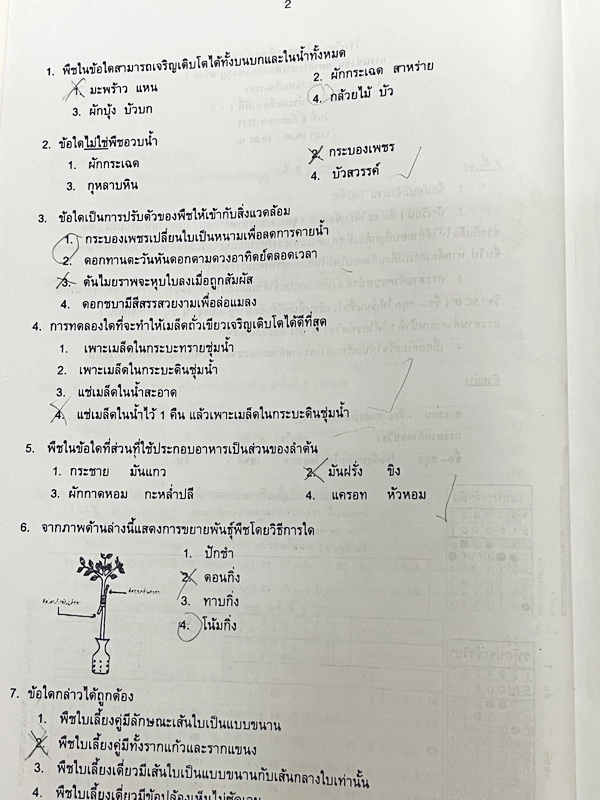 2
1. พืชในข้อใดสามารถเจริญเติบโตได้ทั้งบนบกและในน้ำทั้งหมด
1. มะพร้าว แหน
2. ผักกระเฉด สาหร่าย
3. ผักบุ้ง บัวบก
4. กล้วยไม้ บัว
2. ข้อใดไม่ใช่พืชอวบน้ำ
1. ผักกระเฉด
2. กระบองเพชร
3. กุหลาบหิน
4. บัวสวรรค์
3. ข้อใดเป็นการปรับตัวของพืชให้เข้ากับสิ่งแวดล้อม
1. กระบองเพชรเปลี่ยนใบเป็นหนามเพื่อลดการคายน้ำ
2. ดอกทานตะวันหันดอกตามดวงอาทิตย์ตลอดเวลา
3. ต้นไมยราพจะหุบใบลงเมื่อถูกสัมผัส
4. ดอกชบามีสีสรรสวยงามเพื่อล่อแมลง
4. การทดลองใดที่จะทำให้เมล็ดถั่วเขียวเจริญเติบโตได้ดีที่สุด
1. เพาะเมล็ดในกระบะทรายชุ่มน้ำ
2. เพาะเมล็ดในกระบะดินชุ่มน้ำ
3. แช่เมล็ดในน้ำสะอาด
4. แช่เมล็ดในน้ำไว้ 1 คืน แล้วเพาะเมล็ดในกระบะดินชุ่มน้ำ
5. พืชในข้อใดที่ส่วนที่ใช้ประกอบอาหารเป็นส่วนของลำต้น
1. กระชาย มันแกว
2. มันฝรั่ง ขิง
3. ผักกาดหอม กะหล่ำปลี
4. แครอท หัวหอม
6. จากภาพด้านล่างนี้แสดงการขยายพันธุ์พืชโดยวิธีการใด
1. ปักชำ
2. ตอนกิ่ง
3. ทาบกิ่ง
4. โน้มกิ่ง
7. ข้อใดกล่าวได้ถูกต้อง
1. พืชใบเลี้ยงคู่มีลักษณะเส้นใบเป็นแบบขนาน
2. พืชใบเลี้ยงคู่มีทั้งรากแก้วและรากแขนง
3. พืชใบเลี้ยงเดี่ยวมีเส้นใบเป็นแบบขนานกับเส้นกลางใบเท่านั้น
4. พืชใบเลี้ยงเดี่ยวมีข้อปล้องเห็นไม่ชัดเจน